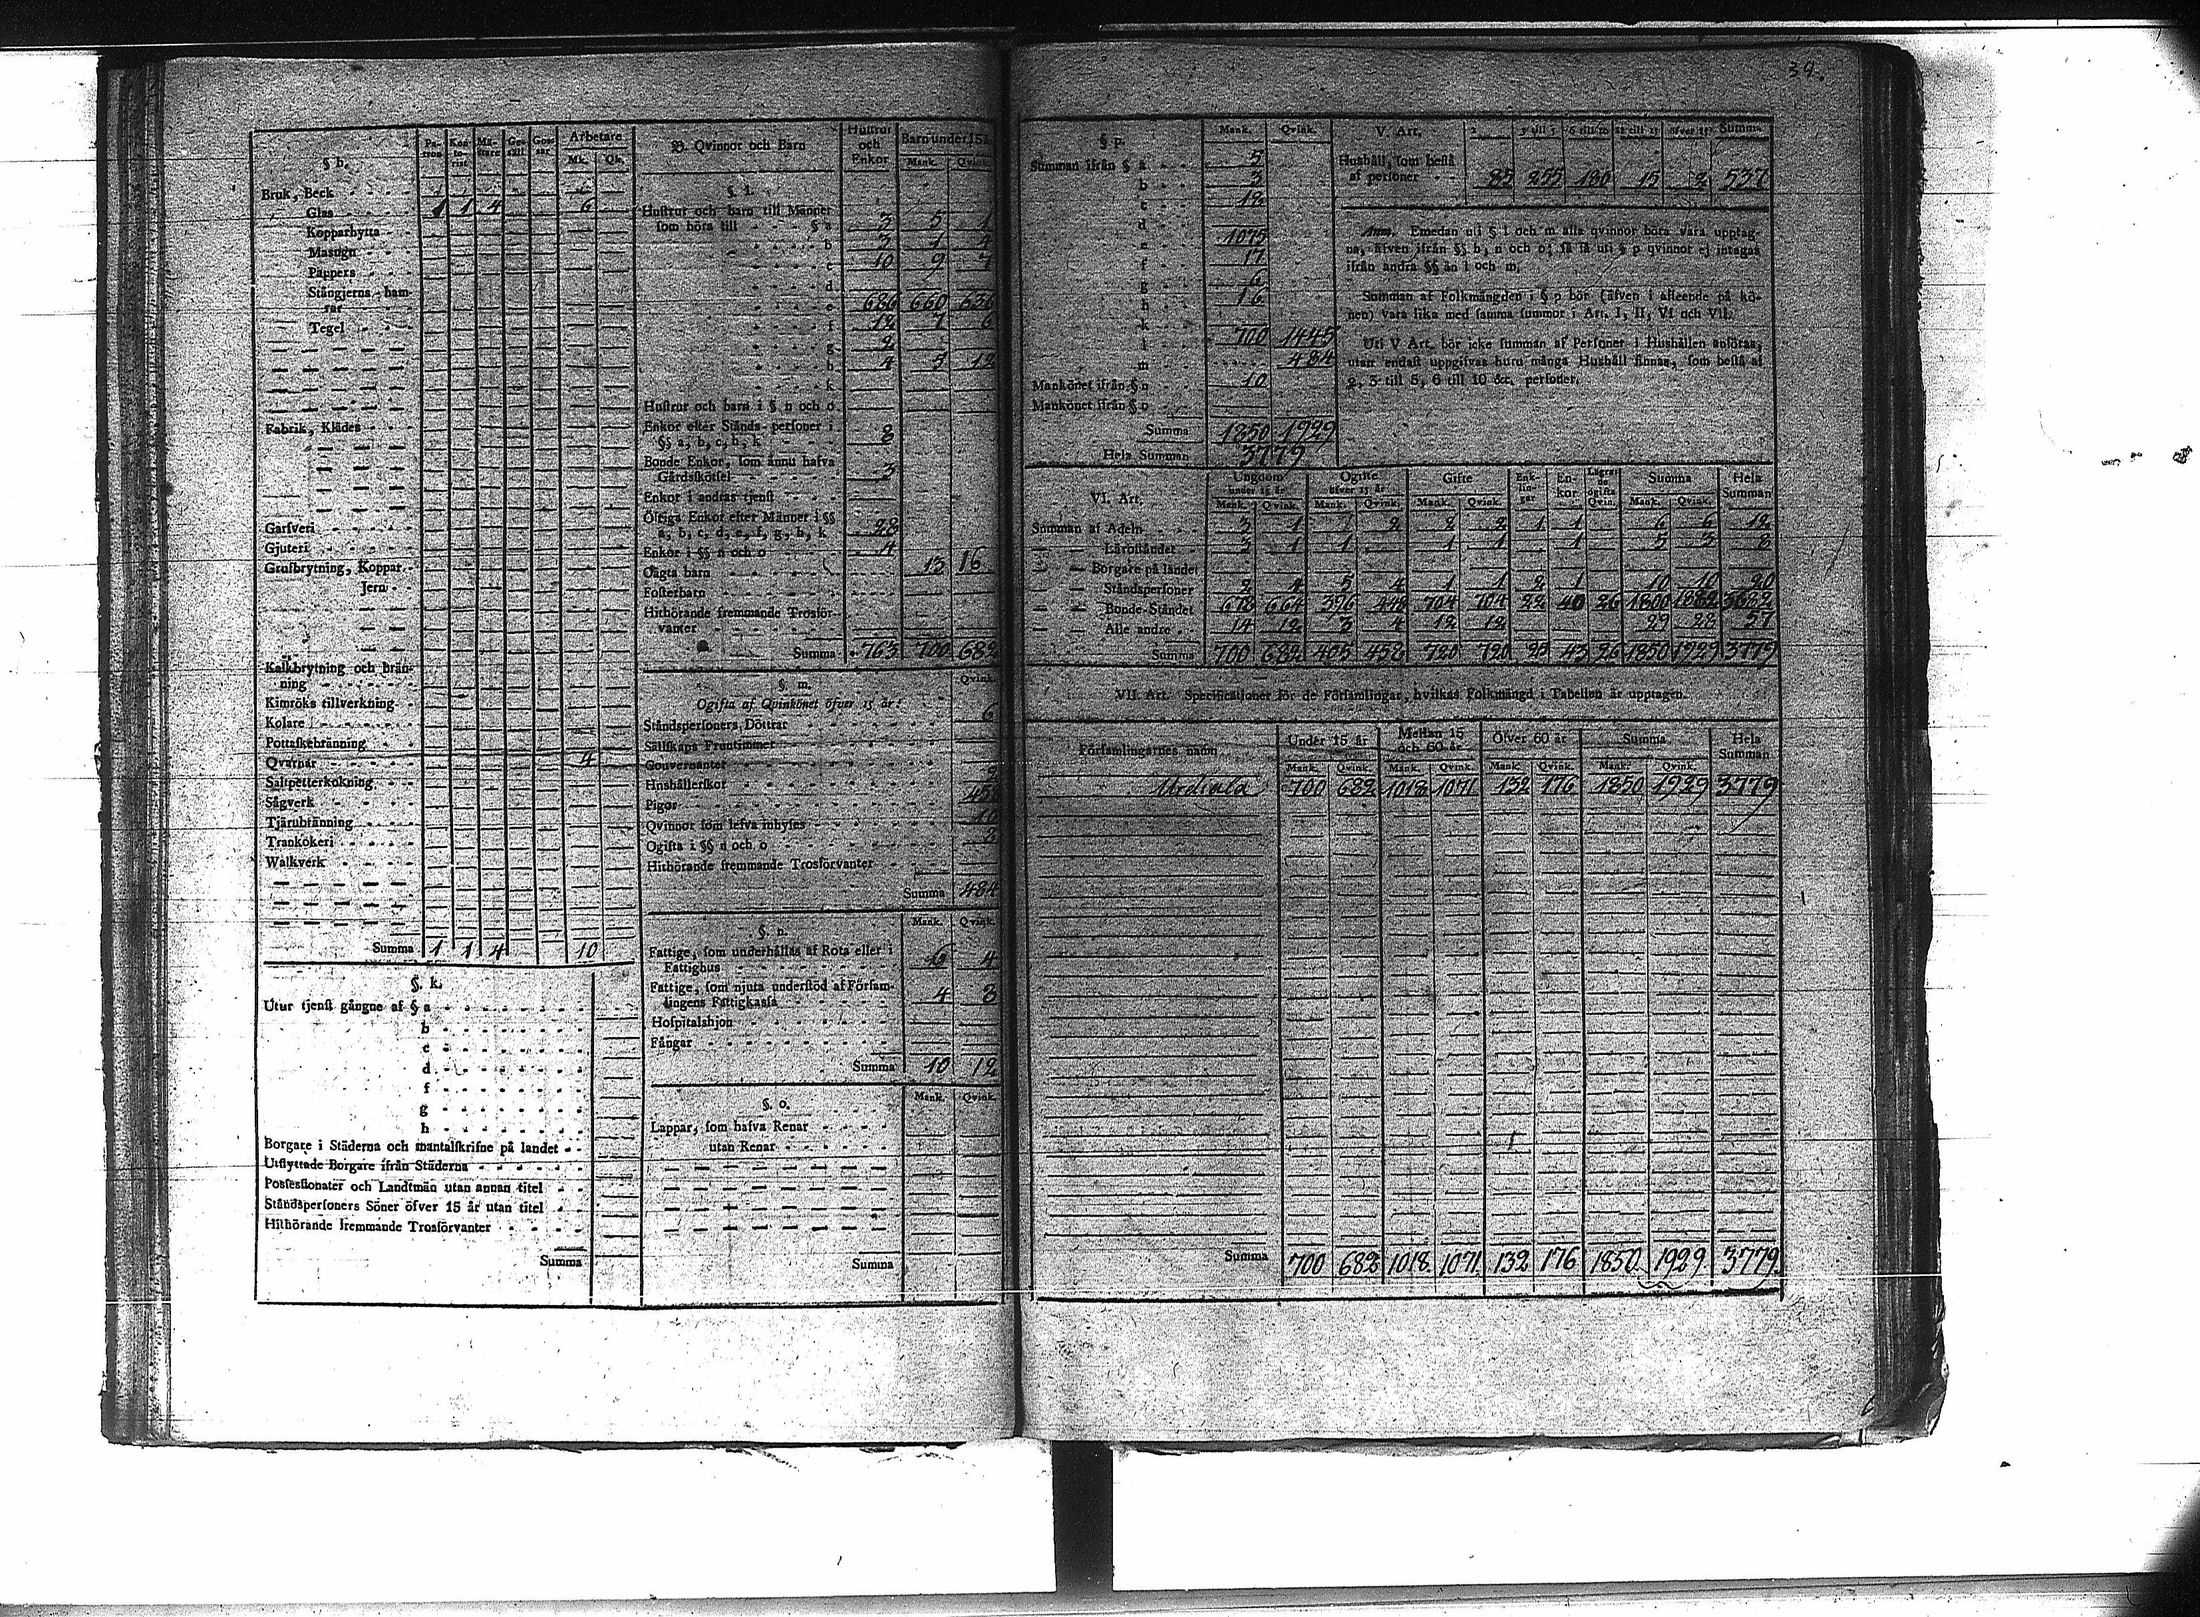 39.
§ h.
Pa-tron Kon-to-rist Mä-stare Ge-säll Gos-sar Arbetare
Mk. Qk.
Bruk, Beck
Glas 1 1 4 6
Kopparhytta
Masugn
Pappers
Stångjerns-ham-
rar
Tegel
Fabrik, Klädes
Garfveri
Gjuteri
Grufbrytning, Koppar
Jern
Kalkbrytning och brän-
ning
Kimröks tillverkning
Kolare
Pottaskebränning
Qvarnar 4
Saltpetterkokning
Sågverk
Tjärubränning
Trankokeri
Walkverk
Summa 1 1 4 10
§. k.
Utur tjenst gångne af § a
b
c
d
f
g
h
Borgare i Städerna och mantalskrifne på landet
Utflyttade Borgare ifrån Städerna
Possessionater och Landtmän utan annan titel
Ståndspersoners Söner öfver 15 år utan titel
Hithörande fremmande Trosförvanter
Summa
B. Qvinnor och Barn Hustrur och Enkor Barn under 15
Mank. Qvink.
§ l.
Hustrur och barn till Männer
som höra till § a 3 5 1
b 3 1 4
c 10 9 7
d
e 686 660 636
f 12 7 6
g 2
h 4 5 12
k
Hustrur och barn i §. n och o
Enkor efter Stånds-personer i
§§ a, b, c, h, k 8
Bonde Enkor, som ännu hafva
Gårdsskötsel 3
Enkor i andras tjenst
Öfriga Enkor efter Männer i §§
a, b, c, d, e, f, g, h, k 28
Enkor i §§ n och o 4
Oägta barn 13 16
Fosterbarn
Hithörande fremmande Trosför-
vanter
Summa 763 700 682
§. m. Qvink.
Ogifta af Qvinkönet öfver 15 år:
Ståndspersoners Döttrar 6
Sällskaps Fruntimmer
Gouvernanter
Hushållerskor
Pigor
Qvinnor som lefva inhyses 10
Ogifta i §§ n och o
Hithörande fremmande Trosförvanter
Summa 484
Mank. Qvink.
§. n.
Fattige, som underhållas af Rota eller i
Fattighus 6 4
Fattige, som njuta understöd af Försam-
lingens Fattigkassa 4 8
Hospitalshjon
Fångar
Summa 10 12
Mank. Qvink.
§. o.
Lappar, som hafva Renar
utan Renar
Summa
§ p. Mank. Qvink.
Summan ifrån § a 5
b 3
c 18
d
e 1075
f 17
g 6
h 16
k
l 700 1445
m 484
Mankönet ifrån § n 10
Mankönet ifrån § o
Summa 1850 1929
Hela Summan 3779
V. Art. 2 3 till 5 6 till 10 11 till 15 öfver 15 Summa
Hushåll, som bestå
af personer 85 255 180 15 2 537
Anm. Emedan uti § l och m alla qvinnor böra vara upptag-
na, äfven ifrån §§ b, n och o; så få uti § p qvinnor ej intagas
ifrån andra §§ än l och m.
Summan af Folkmängden i § p bör (äfven i afseende på kö-
nen) vara lika med samma summor i Art. I, II, VI och VII.
Uti V Art. bör icke summan af Personer i Hushållen anföras,
utan endast uppgifvas huru många Hushåll finnas, som bestå af
2, 3 till 5, 6 till 10 &c. personer.
VI. Art. Ungdom under 15 år Ogifte öfver 15 år Gifte Enk-lin-gar En-kor Lägra-de ogifta Qvin. Summa Hela Summan
Mank. Qvink. Mank. Qvink. Mank. Qvink. Mank. Qvink.
Summan af Adeln 3 1 2 2 2 1 1 6 6 12
Läroståndet 3 1 1 1 1 1 5 3 8
Borgare på landet
Ståndspersoner 2 4 5 4 1 1 2 1 10 10 20
Bonde-Ståndet 678 664 396 448 704 704 22 40 26 1800 1882 3682
Alle andre 14 12 3 4 12 12 29 28 57
Summa 700 682 405 458 720 720 25 43 26 1850 1929 3779
VII. Art. Specificationer för de Församlingar, hvilkas Folkmängd i Tabellen är upptagen.
Församlingarnes namn Under 15 år Mellan 15 och 60 år Öfver 60 år Summa Hela Summan
Mank. Qvink. Mank. Qvink. Mank. Qvink. Mank. Qvink.
Urdiala 700 682 1018 1071 132 176 1850 1929 3779
Summa 700 682 1018. 1071. 132 176 1850. 1929 3779.